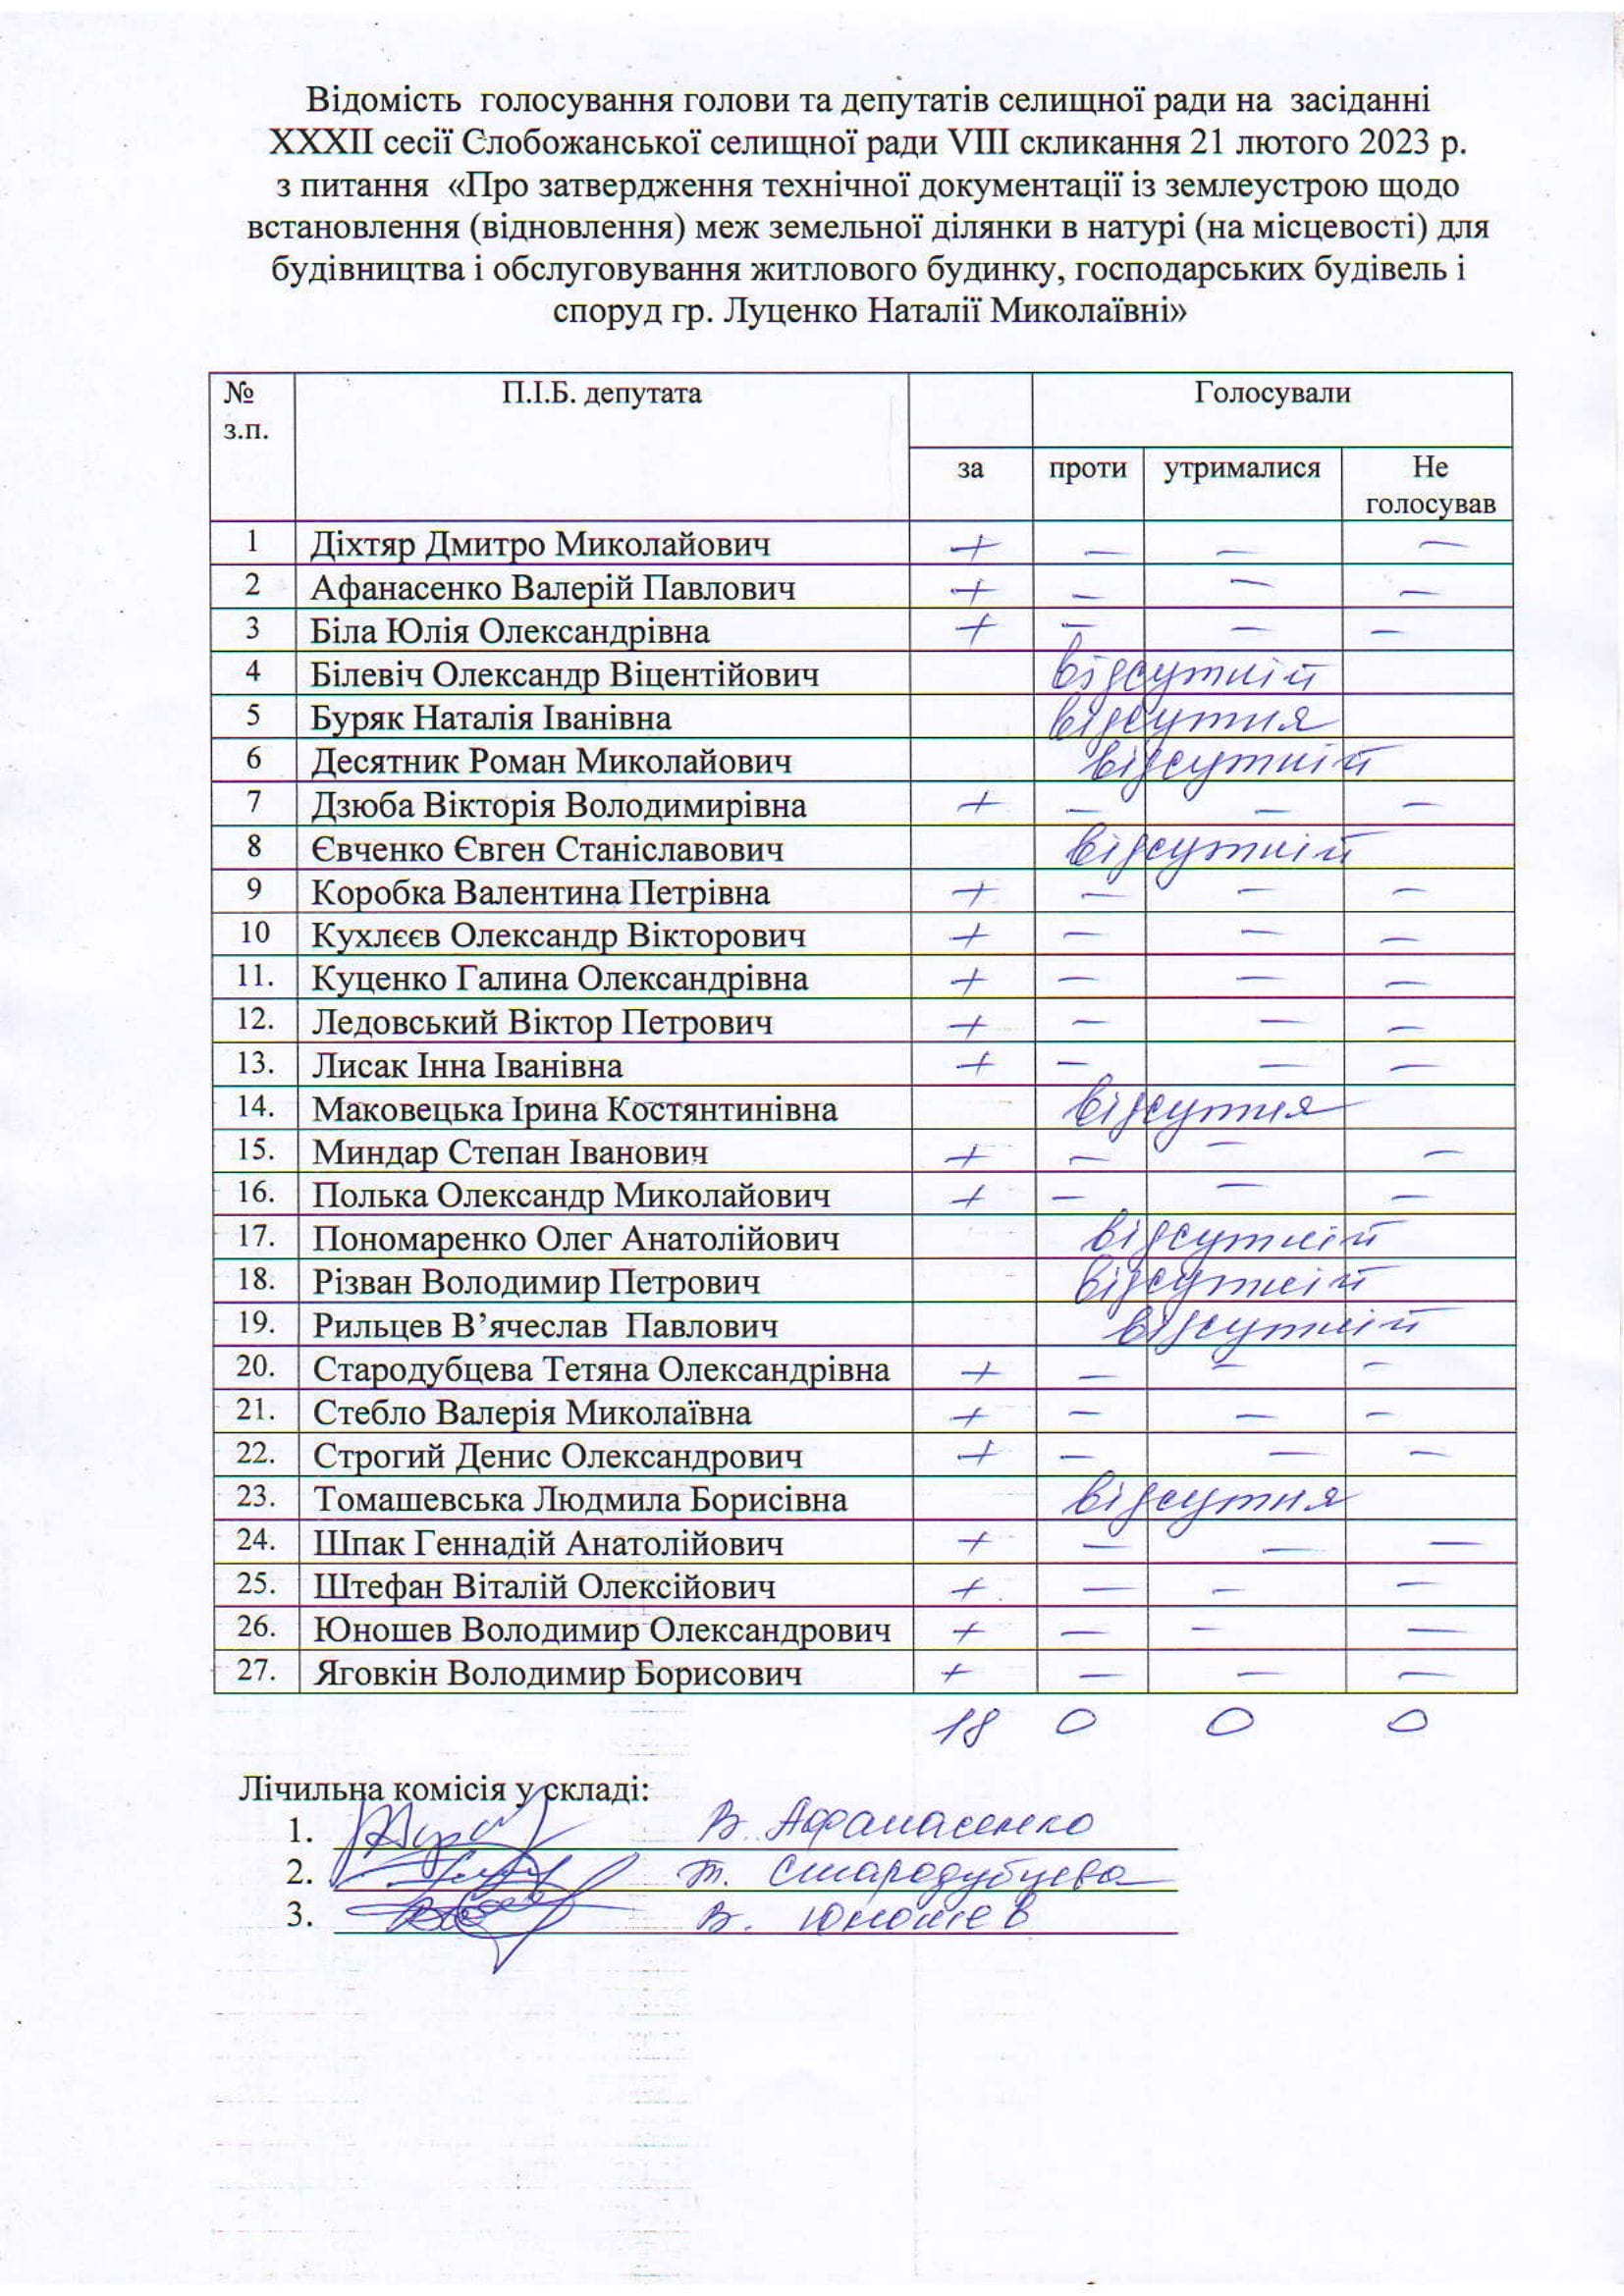 Відомість голосування голови та депутатів селищної ради на засіданні
XXXII сесії Слобожанської селищної ради VIII скликання 21 лютого 2023 р.
з питання «Про затвердження технічної документації із землеустрою щодо
встановлення (відновлення) меж земельної ділянки в натурі (на місцевості) для
будівництва і обслуговування житлового будинку, господарських будівель і
споруд гр. Луценко Наталії Миколаївні»
№ з.п. П.І.Б. депутата Голосували
за проти утрималися Не голосував
1 Діхтяр Дмитро Миколайович + — — —
2 Афанасенко Валерій Павлович + — — —
3 Біла Юлія Олександрівна + — — —
4 Білевіч Олександр Віцентійович відсутній
5 Буряк Наталія Іванівна відсутня
6 Десятник Роман Миколайович відсутній
7 Дзюба Вікторія Володимирівна + — — —
8 Євченко Євген Станіславович відсутній
9 Коробка Валентина Петрівна + — — —
10 Кухлєєв Олександр Вікторович + — — —
11. Куценко Галина Олександрівна + — — —
12. Ледовський Віктор Петрович + — — —
13. Лисак Інна Іванівна + — — —
14. Маковецька Ірина Костянтинівна відсутня
15. Миндар Степан Іванович + — — —
16. Полька Олександр Миколайович + — — —
17. Пономаренко Олег Анатолійович відсутній
18. Різван Володимир Петрович відсутній
19. Рильцев В’ячеслав Павлович відсутній
20. Стародубцева Тетяна Олександрівна + — — —
21. Стебло Валерія Миколаївна + — — —
22. Строгий Денис Олександрович + — — —
23. Томашевська Людмила Борисівна відсутня
24. Шпак Геннадій Анатолійович + — — —
25. Штефан Віталій Олексійович + — — —
26. Юношев Володимир Олександрович + — — —
27. Яговкін Володимир Борисович + — — —
18 0 0 0
Лічильна комісія у складі:
1. В. Афанасенко
2. Т. Стародубцева
3. В. Юношев